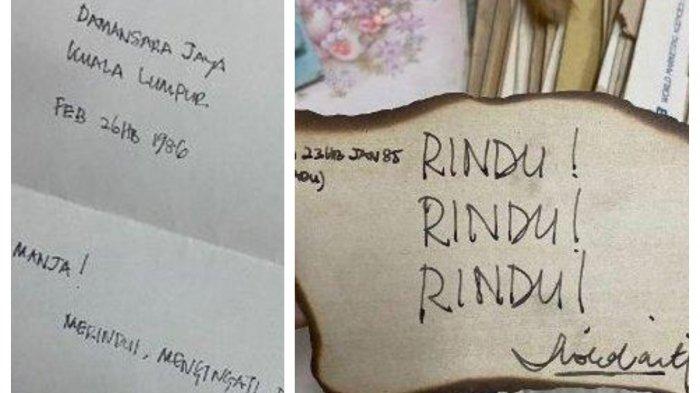 DAMANSARA JAYA
KUALA LUMPUR
FEB 26HB 1986
MANJA!
MERINDUI, MENGINGATI,
23HB JAN 85
RINDU!
RINDU!
RINDU!